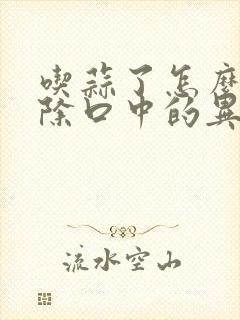 喫蒜了怎麼
除口中的異
流水空山